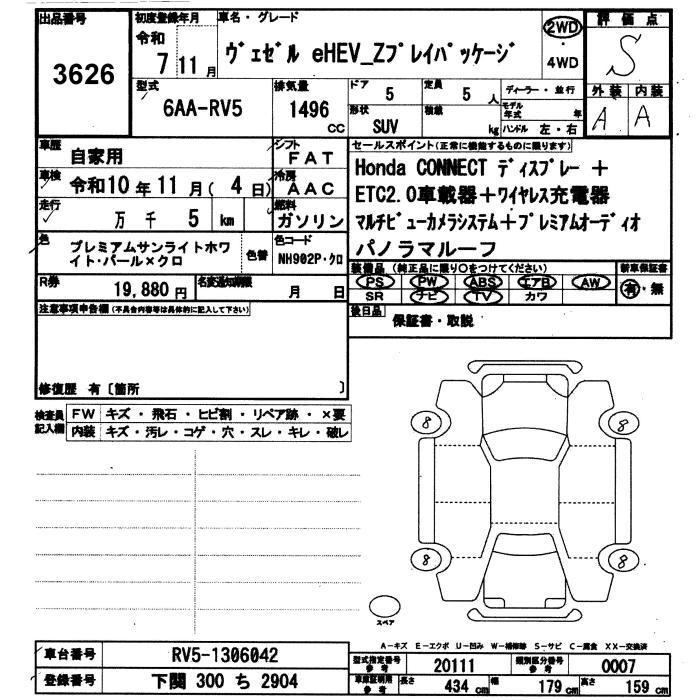 出品番号
3626
初度登録年月
令和
7 11 月
車名・グレード
ヴェゼル eHEV_Zプレイパッケージ
2WD
・
4WD
評価点
S
外装 内装
A A
型式
6AA-RV5
排気量
1496
CC
ドア
5
定員
5 人
形状
SUV
積載
kg
ディーラー・並行
モデル年式 年
ハンドル 左・右
車歴
自家用
シフト
FAT
車検
令和10年11月(4日)
冷房
AAC
走行
万 千 5 km
燃料
ガソリン
色
プレミアムサンライトホワ
イト・パール×クロ
色替
色コード
NH902P・クロ
R券
19,880円
名変通知期限
月 日
セールスポイント(正常に機能するものに限ります)
Honda CONNECT ディスプレー +
ETC2.0車載器+ワイヤレス充電器
マルチビューカメラシステム+プレミアムオーディオ
パノラマルーフ
装備品 (純正品に限り○をつけてください)
PS PW ABS エアB AW
SR ナビ TV カワ
新車保証書
有・無
後日品
保証書・取説
注意事項申告欄(不具合内容等は具体的に記入して下さい)
修復歴 有〔箇所 〕
検査員
記入欄
FW キズ・飛石・ヒビ割・リペア跡・×要
内装 キズ・汚レ・コゲ・穴・スレ・キレ・破レ
8 8
8 8
スペア
A-キズ E-エクボ U-凹み W-補修跡 S-サビ C-腐食 XX-交換済
車台番号 RV5-1306042
登録番号 下関 300 ち 2904
型式指定番号
参考
20111
類別区分番号
参考
0007
車庫証明用
参考
長さ 434 cm 幅 179 cm 高さ 159 cm